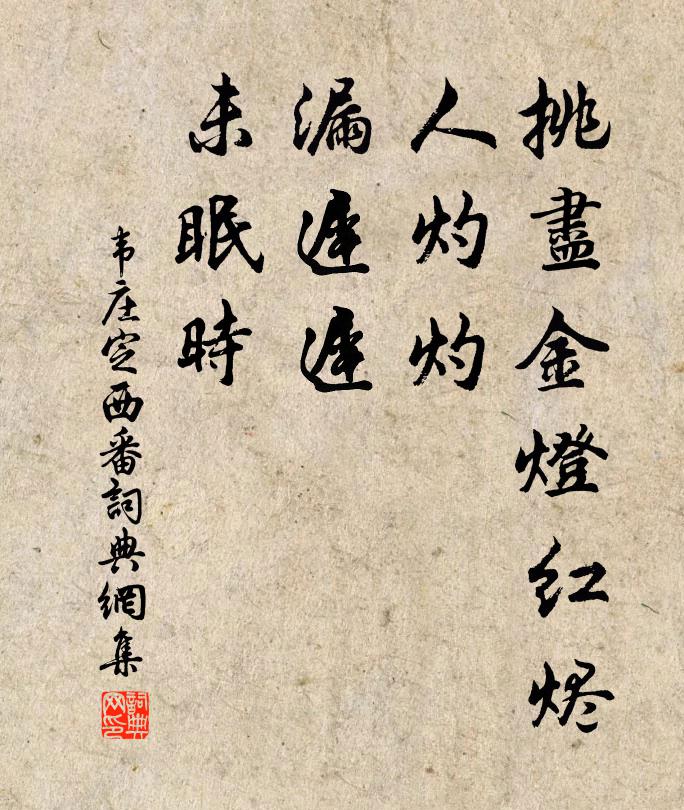 挑盡金燈红烬
人灼灼
漏遲遲
未眠時
韦庄定西番詞典網集
詞典
网印